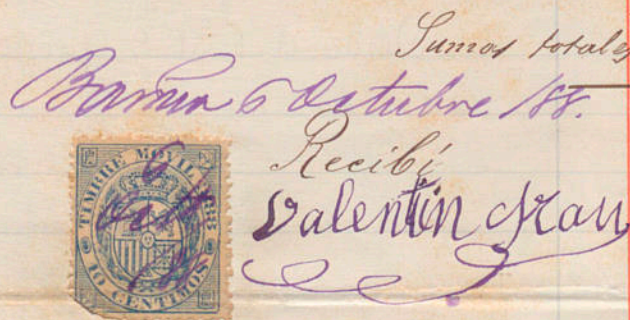 Sumas totales
Barna 6 Octubre 188.
Recibí
Valentín Grau
TIMBRE MOVIL 1888
6
Oct
10 CENTIMOS